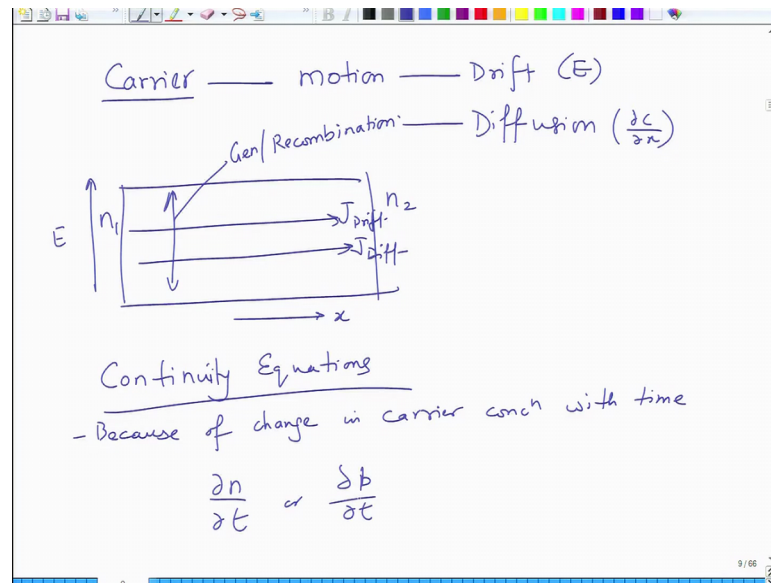 Carrier — motion — Drift (E)
Gen/Recombination — Diffusion (∂c/∂x)
E n1 n2
JDrift
JDiff
x
Continuity Equations
- Because of change in carrier concn with time
∂n/∂t or ∂p/∂t
9 / 66